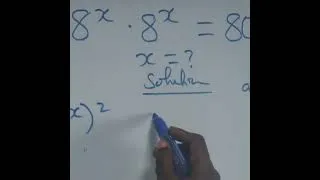 8ˣ · 8ˣ = 80
x = ?
Solution
x)²